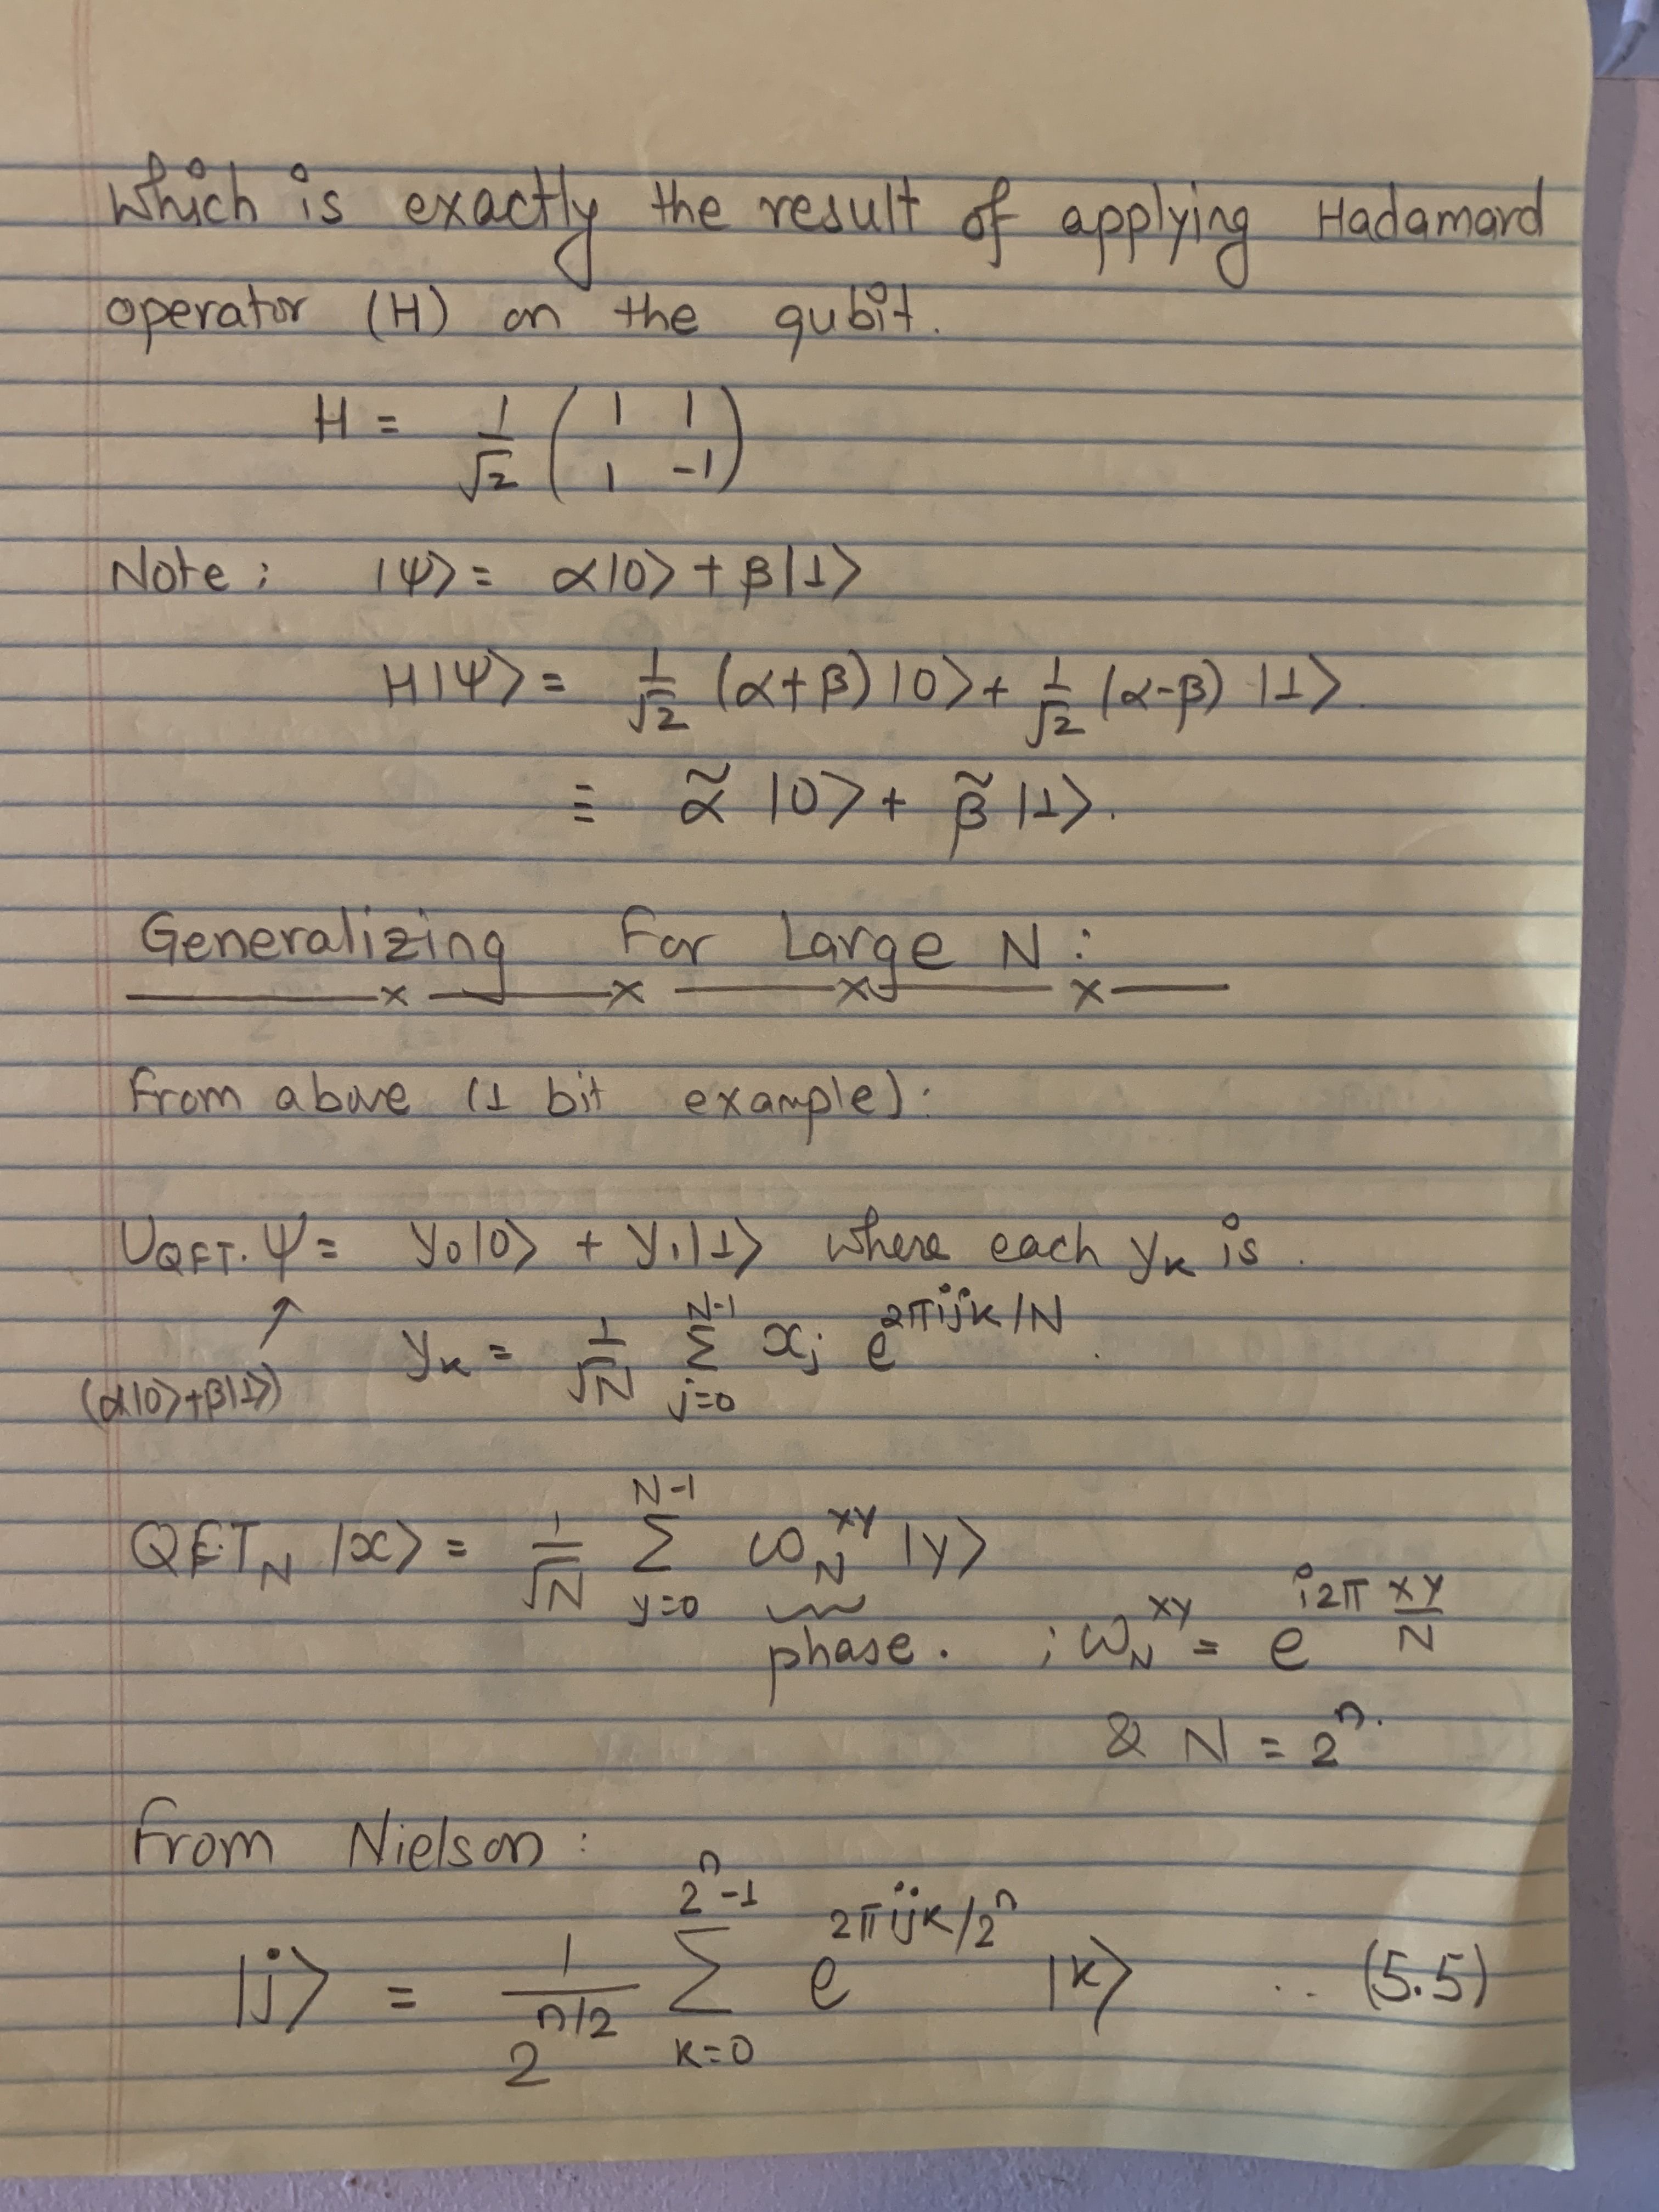 Which is exactly the result of applying Hadamard
operator (H) on the qubit.
H = 1/√2 ( 1 1 ; 1 -1 )
Note: |Ψ> = α|0> + β|1>
H|Ψ> = 1/√2 (α+β) |0> + 1/√2 (α-β) |1>.
≡ α̃ |0> + β̃ |1>.
Generalizing For Large N:
From above (1 bit example):
U_QFT. Ψ = y₀|0> + y₁|1> where each y_k is.
(α|0>+β|1>) ↗ y_k = 1/√N Σ_{j=0}^{N-1} x_j e^{2πijk/N}.
QFT_N |x> = 1/√N Σ_{y=0}^{N-1} ω_N^{xy} |y>
phase. ; ω_N^{xy} = e^{i2π xy/N}
& N = 2ⁿ.
From Nielson:
|j> = 1/2^{n/2} Σ_{k=0}^{2ⁿ-1} e^{2πijk/2ⁿ} |k> .. (5.5)